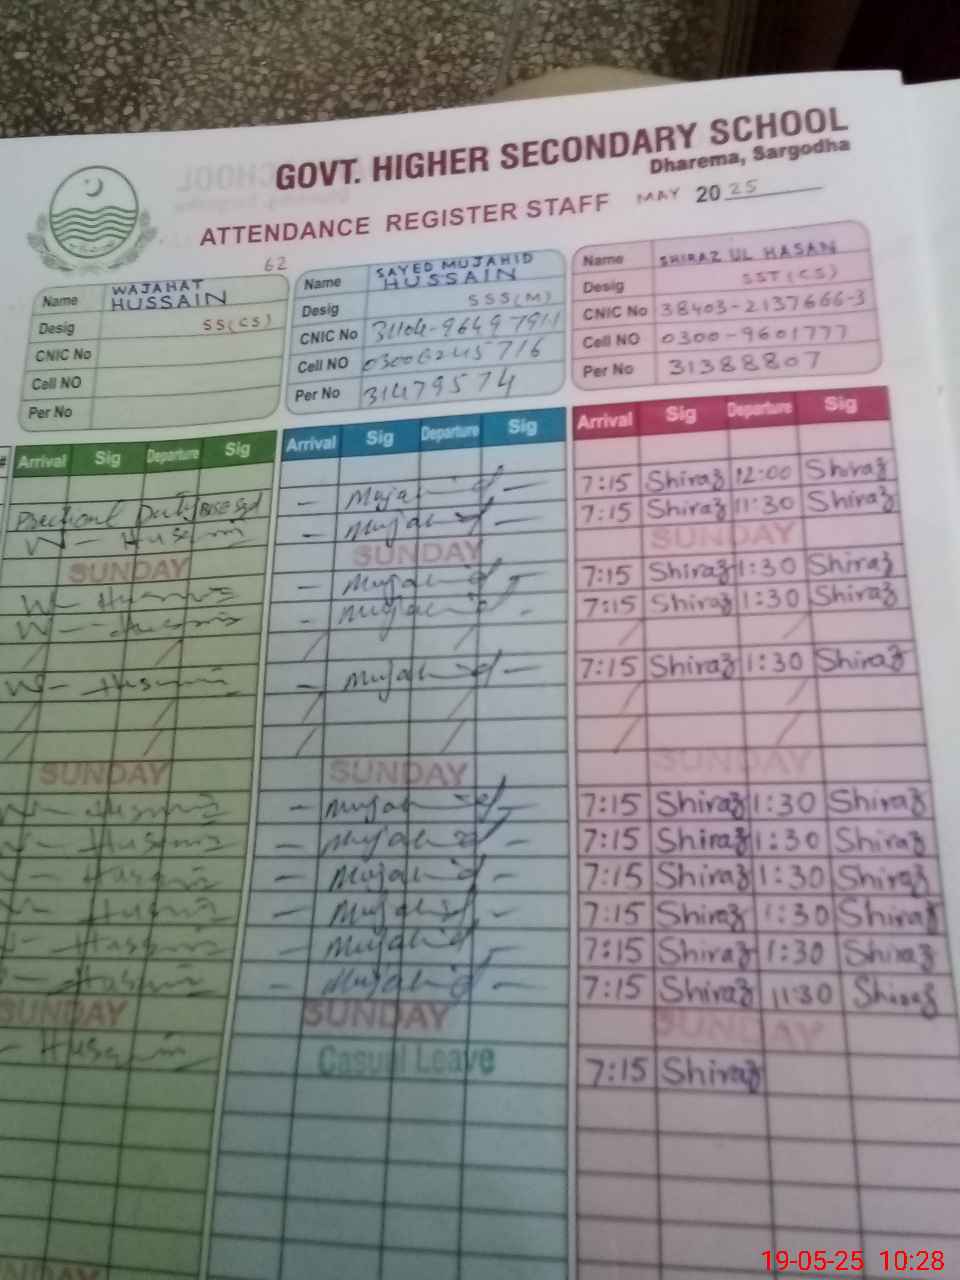 GOVT. HIGHER SECONDARY SCHOOL
Dharema, Sargodha
ATTENDANCE REGISTER STAFF MAY 2025
62
Name WAJAHAT HUSSAIN
Desig SS(CS)
CNIC No
Cell NO
Per No
Name SAYED MUJAHID HUSSAIN
Desig SSS(M)
CNIC No
Cell NO
Per No 31479574
Name SHIRAZ UL HASAN
Desig SST(CS)
CNIC No 38403-2137666-3
Cell NO 0300-9601777
Per No 31388807
# Arrival Sig Departure Sig Arrival Sig Departure Sig Arrival Sig Departure Sig
— Mujahid — 7:15 Shiraz 12:00 Shiraz
Duty — Mujahid 7:15 Shiraz 11:30 Shiraz
W-Hussain SUNDAY SUNDAY
SUNDAY — Mujahid 7:15 Shiraz 1:30 Shiraz
W-Hussain — Mujahid - 7:15 Shiraz 1:30 Shiraz
W-Hussain
W-Hussain — Mujahid — 7:15 Shiraz 1:30 Shiraz
SUNDAY SUNDAY SUNDAY
W-Hussain — Mujahid 7:15 Shiraz 1:30 Shiraz
Hussain — Mujahid 7:15 Shiraz 1:30 Shiraz
Hussain — Mujahid — 7:15 Shiraz 1:30 Shiraz
Hussain — Mujahid — 7:15 Shiraz 1:30 Shiraz
Hussain — Mujahid — 7:15 Shiraz 1:30 Shiraz
Hussain — Mujahid — 7:15 Shiraz 11:30 Shiraz
SUNDAY SUNDAY SUNDAY
Hussain Casual Leave 7:15 Shiraz
SUNDAY
19-05-25 10:28